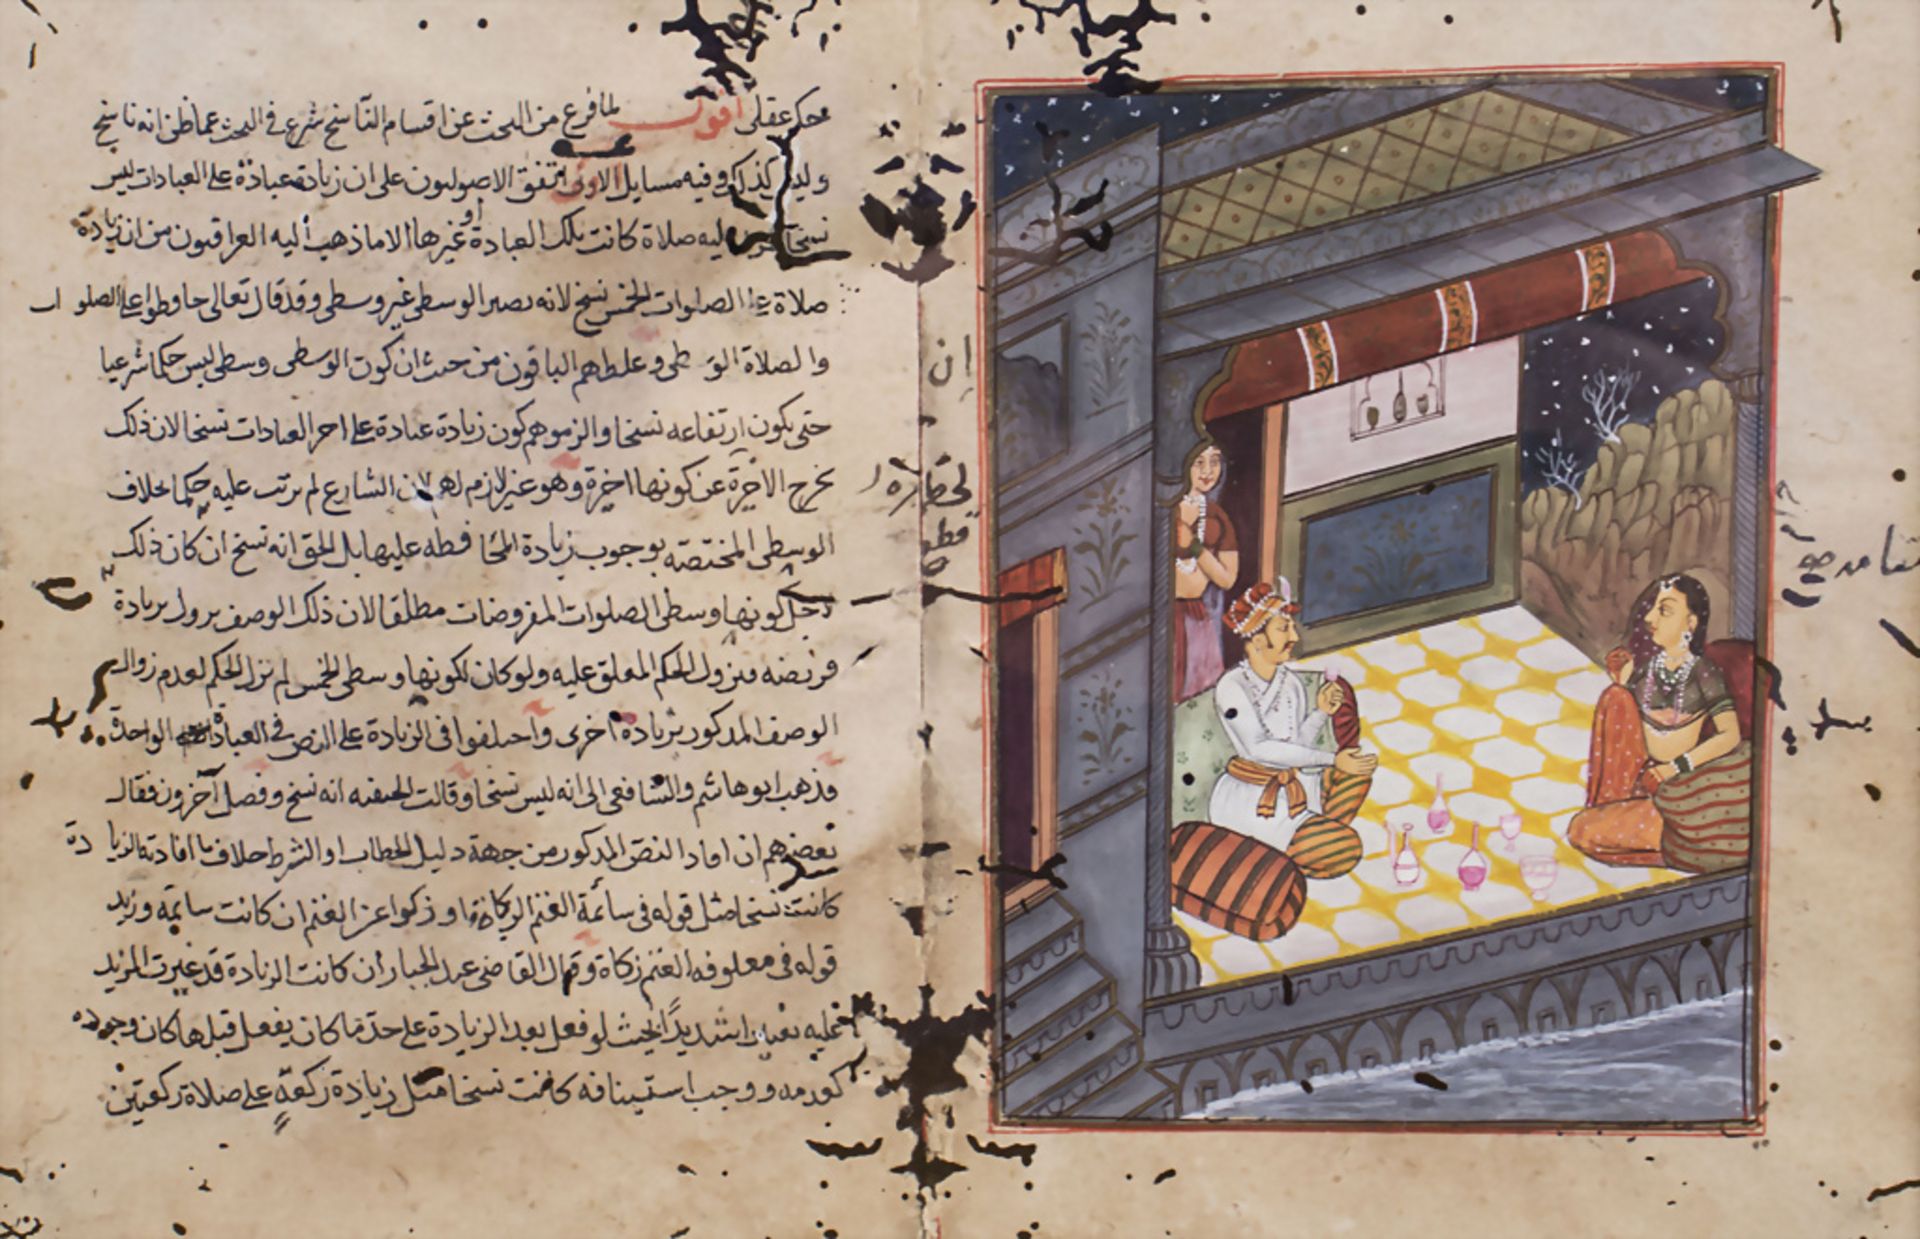 محكم عقلى اقول لما فرغ من البحث عن اقسام الناسخ شرع فى البحث عما ظن انه ناسخ
وليس كذلك وفيه مسايل الاولى اتفق الاصوليون على ان زيادة عبادة على العبادات ليس
نسخا صلاة كانت تلك العبادة او غيرها الا ما ذهب اليه العراقيون من ان زيادة
صلاة على الصلوات الخمس نسخ لانه يصير الوسطى غير وسطى وقد قال تعالى حافظوا على الصلوات
والصلاة الوسطى وغلطهم الباقون من حيث ان كون الوسطى وسطى ليس حكما شرعيا
حتى يكون ارتفاعه نسخا والزموهم كون زيادة عبادة على اخر العبادات نسخا لان ذلك
يخرج الاخرة عن كونها اخيرة وهو غير لازم لهم لان الشارع لم يرتب عليه حكما بخلاف
الوسطى المختصة بوجوب زيادة المحافظه عليها بل الحق انه نسخ ان كان ذلك
لاجل كونها وسطى الصلوات المفروضات مطلقا لان ذلك الوصف يزول بزيادة
فريضه فيزول الحكم المعلق عليه ولو كان لكونها وسطى الخمس لم يزل الحكم لعدم زوال
الوصف المذكور بزيادة اخرى واختلفوا فى الزيادة على النص فى العبادة الواحدة
فذهب ابو هاشم والشافعى الى انه ليس نسخا وقالت الحنفيه انه نسخ وفصل آخرون فقال
بعضهم ان افاد النص المذكور من جهة دليل الخطاب او الشرط خلاف ما افادته الزيادة
كانت نسخا مثل قوله فى سائمة الغنم الزكاة او زكوا عن الغنم ان كانت سايمة وزيد
قوله فى معلوفه الغنم زكاة وقال القاضى عبد الجبار ان كانت الزيادة قد غيرت المزيد
عليه تغييرا شديدا بحيث لو فعل بعد الزيادة على حد ما كان يفعل قبلها كان وجوده
كعدمه ووجب استينافه كانت نسخا مثل زيادة ركعة على صلاة ركعتين
ان